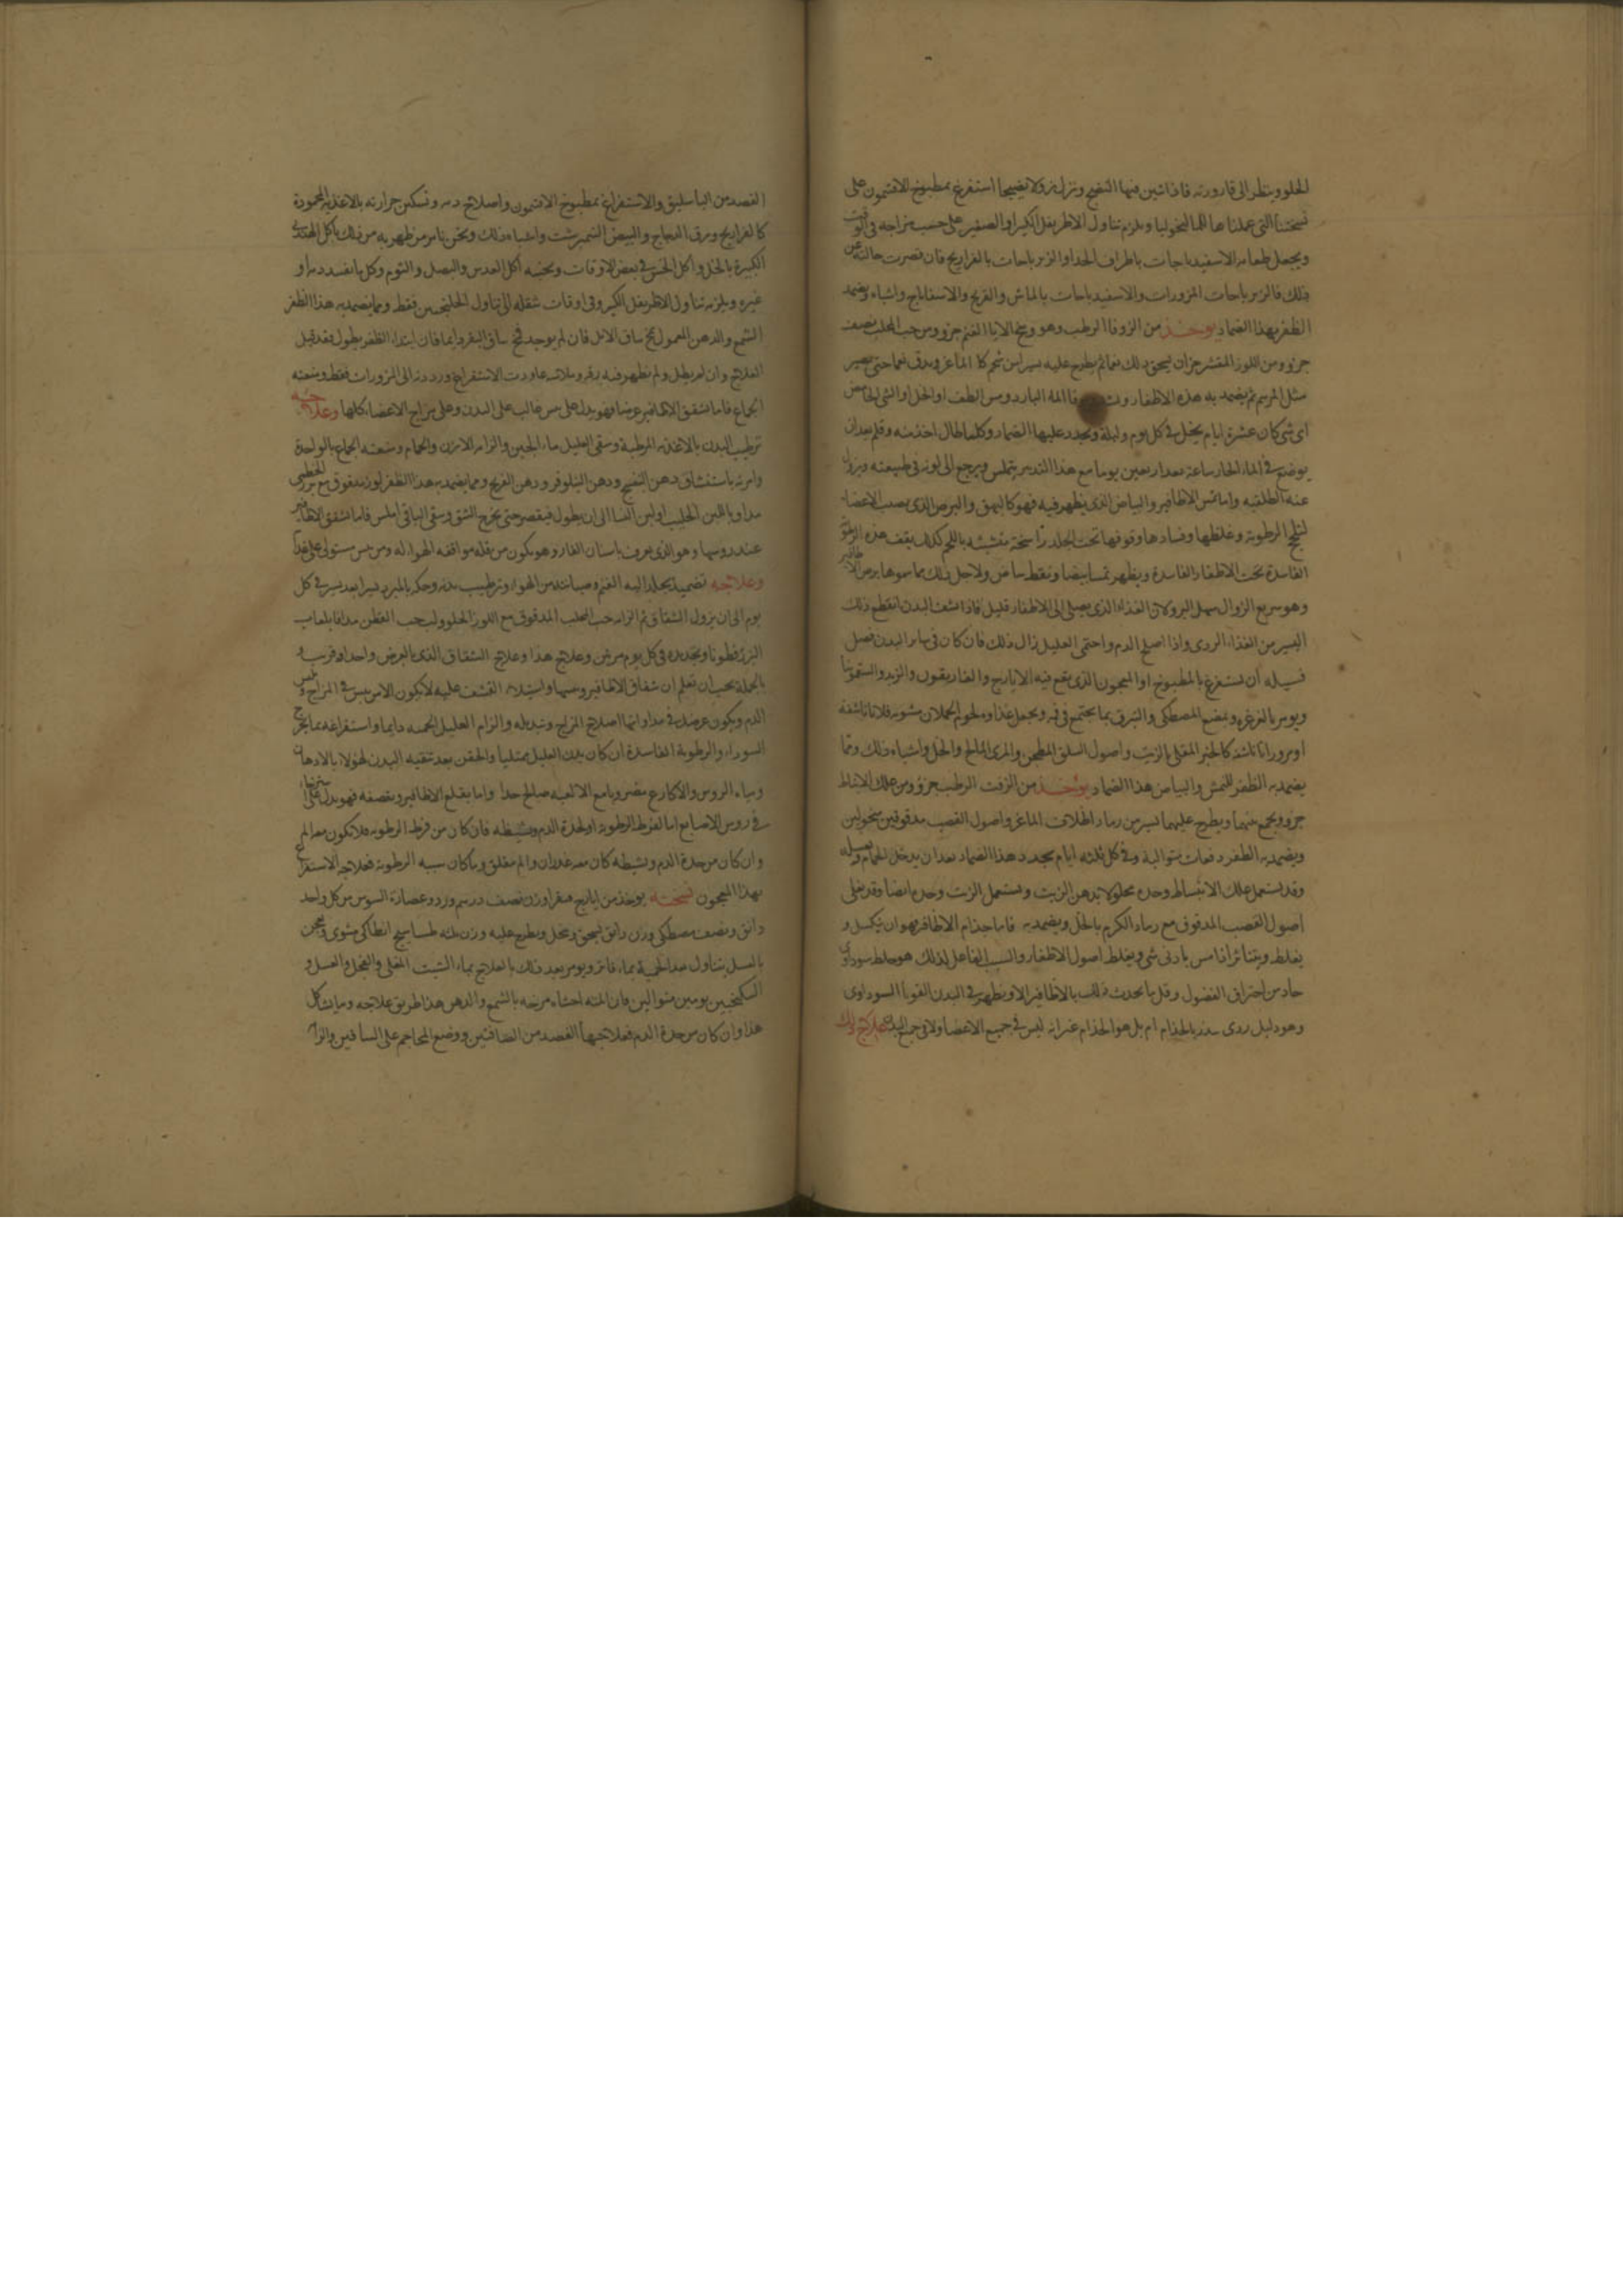 الحلو وينظر الى قارورته فاذا تبين فيها النضج ونزل بزولا نضيجا استفرغ بمطبوخ الافتيمون على
نسختنا التى عملناها للماليخوليا ويلزم تناول الاطريفل الكبير او الصغير على حسب مزاجه فى الوقت
ويجعل طعامه الاسفيدباجات باطراف الجدا او الزيرباجات بالفراريج فان قصرت حالته عن
ذلك فالزيرباجات المزورات والاسفيدباجات بالماش والقرع والاسفاناج واشباهه ويضمد
الظفر بهذا الضماد يوخذ من الزوفا الرطب وهو وسخ الايا الغنم جزو ومن حب المحلب نصف
جزو ومن اللوز المقشر جزان يسحق ذلك نعما ثم يطرح عليه يسير من شحم كلا الماعز ويدق نعما حتى يصير
مثل المرهم ثم يضمد به هذه الاظفار الماء البارد ومس الطف او الخل او الشى الحامض
اى شى كان عشرة ايام يحل فى كل يوم وليلة ويجدد عليها الضماد وكلما طال اخذته وقلم بعد ان
يوضع فى الماء الحار ساعة بعد اربعين يوما مع هذا التدبير يتملس ويرجع الى لونه فى طبيعته ويزول
عنه الطلقيه واما نمش الاظافير والبياض الذى يظهر فيه فهو كالبهق والبرص الذى يصيب الاعضاء
للحج الرطوبة وغلظها وفسادها وقوفها تحت الجلد راسخة متشبثه باللحم كذلك يقف هذه الرطوبة
الفاسدة تحت الاظفار الفاسدة ويظهر نمشا بيضا ونقط بياض ولاجل ذلك ما سموها برص الاظافير
وهو سريع الزوال سهل البرو لان الغذاء الذى يصل الى الاظفار قليل فاذا نشف البدن انقطع ذلك
اليسير من الغذاء الردى واذا اصلح الدم واحتمى العليل زال ذلك فان كان فى ساير البدن فضل
فسبيله ان يستفرغ بالمطبوخ او المعجون الذى يقع فيه الايارج والغاريقون والتربد والسقمونيا
ويومر بالغرغره وبمضغ المصطكى والتبزق بما يجتمع فى فيه ويجعل غذاوه لحوم الحملان مشويه قلايا ناشفة
او بزورانا ناشفة كالخبز المقلى بالزيت واصول السلق المطجن والمرى المالح والخل واشباه ذلك ومما
يضمد به الظفر للنمش والبياض هذا الضماد يوخذ من الزفت الرطب جزو ومن علك الانباط
جزو ويجمع بينهما ويطرح عليهما يسير من رماد اظلاف الماعز واصول القصب مدقوقين منخولين
ويضمد به الظفر دفعات متوالية وفى كل ثلثه ايام يجدد هذا الضماد بعد ان يدخل الحمام ويغسله
وقد يستعمل علك الانباط وحده محلولا بدهن الزيت ويستعمل الزيت وحده ايضا وقد يغلى
اصول القصب المدقوق مع رماد الكرم بالخل ويضمد به فاما جذام الاظافر فهو ان يكسل و
يغلظ ويتناثر اذا مس بادنى شى ويغلظ اصول الاظفار والسبب الفاعل لذلك هو خلط سوداوى
حاد من احتراق الفضول وقل ما يحدث ذلك بالاظافير الا ويظهر فى البدن القوبا السوداوى
وهو دليل ردى ينذر بالجذام ام بل هو الجذام غير انه ليس فى جميع الاعضا ولا فى جميع البدن علاج ذلك
الفصد من الباسليق والاستفراغ بمطبوخ الافتيمون واصلاح دمه وتسكين حرارته بالاغذيه المحمودة
كالفراريج ومرق الدجاج والبيض النيمرشت واشباه ذلك ونحن نامر من ظهر به من ذلك باكل الهندبى
الكبيرة بالخل واكل الخس فى بعض الاوقات ونجنبه اكل العدس والبصل والثوم وكل ما يفسد دمه او
غيره ويلزمه تناول الاطريفل الكبير وفى اوقات شقله الى تناول الجلنجبين فقط ومما يضمد به هذا الظفر
الشمع والدهن المعمول بمخ ساق الايل فان لم يوجد فمخ ساق البقر دايما فان ابتداء الظفر يطول فقد قبل
العلاج وان لم يطل ولم تظهر فيه رقه وملاسه عاودت الاستفراغ ورددته الى المزورات فقط ومنعته
الجماع فاما تشقق الاظافير عرضا فهو يدل على يبس غالب على البدن وعلى مزاج الاعضاء كلها وعلاجه
ترطيب البدن بالاغذيه المرطبة وسقى العليل ماء الجبن والزامه الابزن والحمام ومنعته الجماع بالواحدة
وامرته باستنشاق دهن البنفسج ودهن النيلوفر ودهن القرع ومما يضمد به هذا الظفر لوز مدقوق مع بزر الخطمى
مداوبا باللبن الحليب او لبن النسا الى ان يطول فيقص حتى يخرج الشق وسقى الباقى املس فاما تشقق الاظافير
عند روسها وهو الذى يعرف باسنان الفار وهو يكون من قله موافقه الهواء له ومن يبس مستولى على غذاه
وعلاجه تضميد بجلد اليه الغنم وصيانته من الهواء وترطيب بدنه وحكه بالمبرد يسيرا بعد يسير فى كل
يوم الى ان يزول الشقاق ثم الزامه حب المحلب المدقوق مع اللوز الحلو ولب حب القطن مدافا بلعاب
البزرقطونا وتجديده فى كل يوم مرتين وعلاج هذا وعلاج الشقاق الذى بالعرض واحد او قريب و
بالجملة يجب ان تعلم ان شقاق الاظافير وروسها واستيلاء القشف عليه لا يكون الا من يبس فى المزاج ويبس
الدم ويكون غرضك فى مداواتها اصلاح المزاج وتبديله والزام العليل الحميه دايما واستفراغه بما يخرج
السوداء والرطوبة الفاسدة ان كان بدن العليل ممتليا والحقن بعد تنقيه البدن لهؤلاء بالادهان
ومياه الروس والاكارع مضروبا مع الالعبه صالح جدا واما تقلع الاظافير وتقصفه فهو يدل على استرخاء
فى روس الاصابع اما لفرط الرطوبة او لحدة الدم ونشيطه فان كان من فرط الرطوبه فلا يكون معه الم
وان كان من حدة الدم ونشيطه كان معه ضربان والم مقلق وما كان سببه الرطوبة فعلاجه الاستفراغ
بهذا المعجون نسخته يوخذ من ايارج فيقرا وزن نصف درهم ورد وعصارة السوس من كل واحد
دانق ونصف مصطكى وزن دانق يسحق وينخل ويطرح عليه وزن ثلثه طساسيج انطاكى مشوى ويعجن
بالعسل يتناول بعد الحمية بماء فاتر ويومر بعد ذلك بالعلاج بماء الشبت المغلى والفجل والعسل و
السكنجبين يومين متوالين فان المته احشاه مرخه بالشمع والدهن هذا طريق علاجه وما يشاكل
هذا وان كان من حدة الدم فعلاجها الفصد من الصافنين ووضع المحاجم على الساقين والزامه